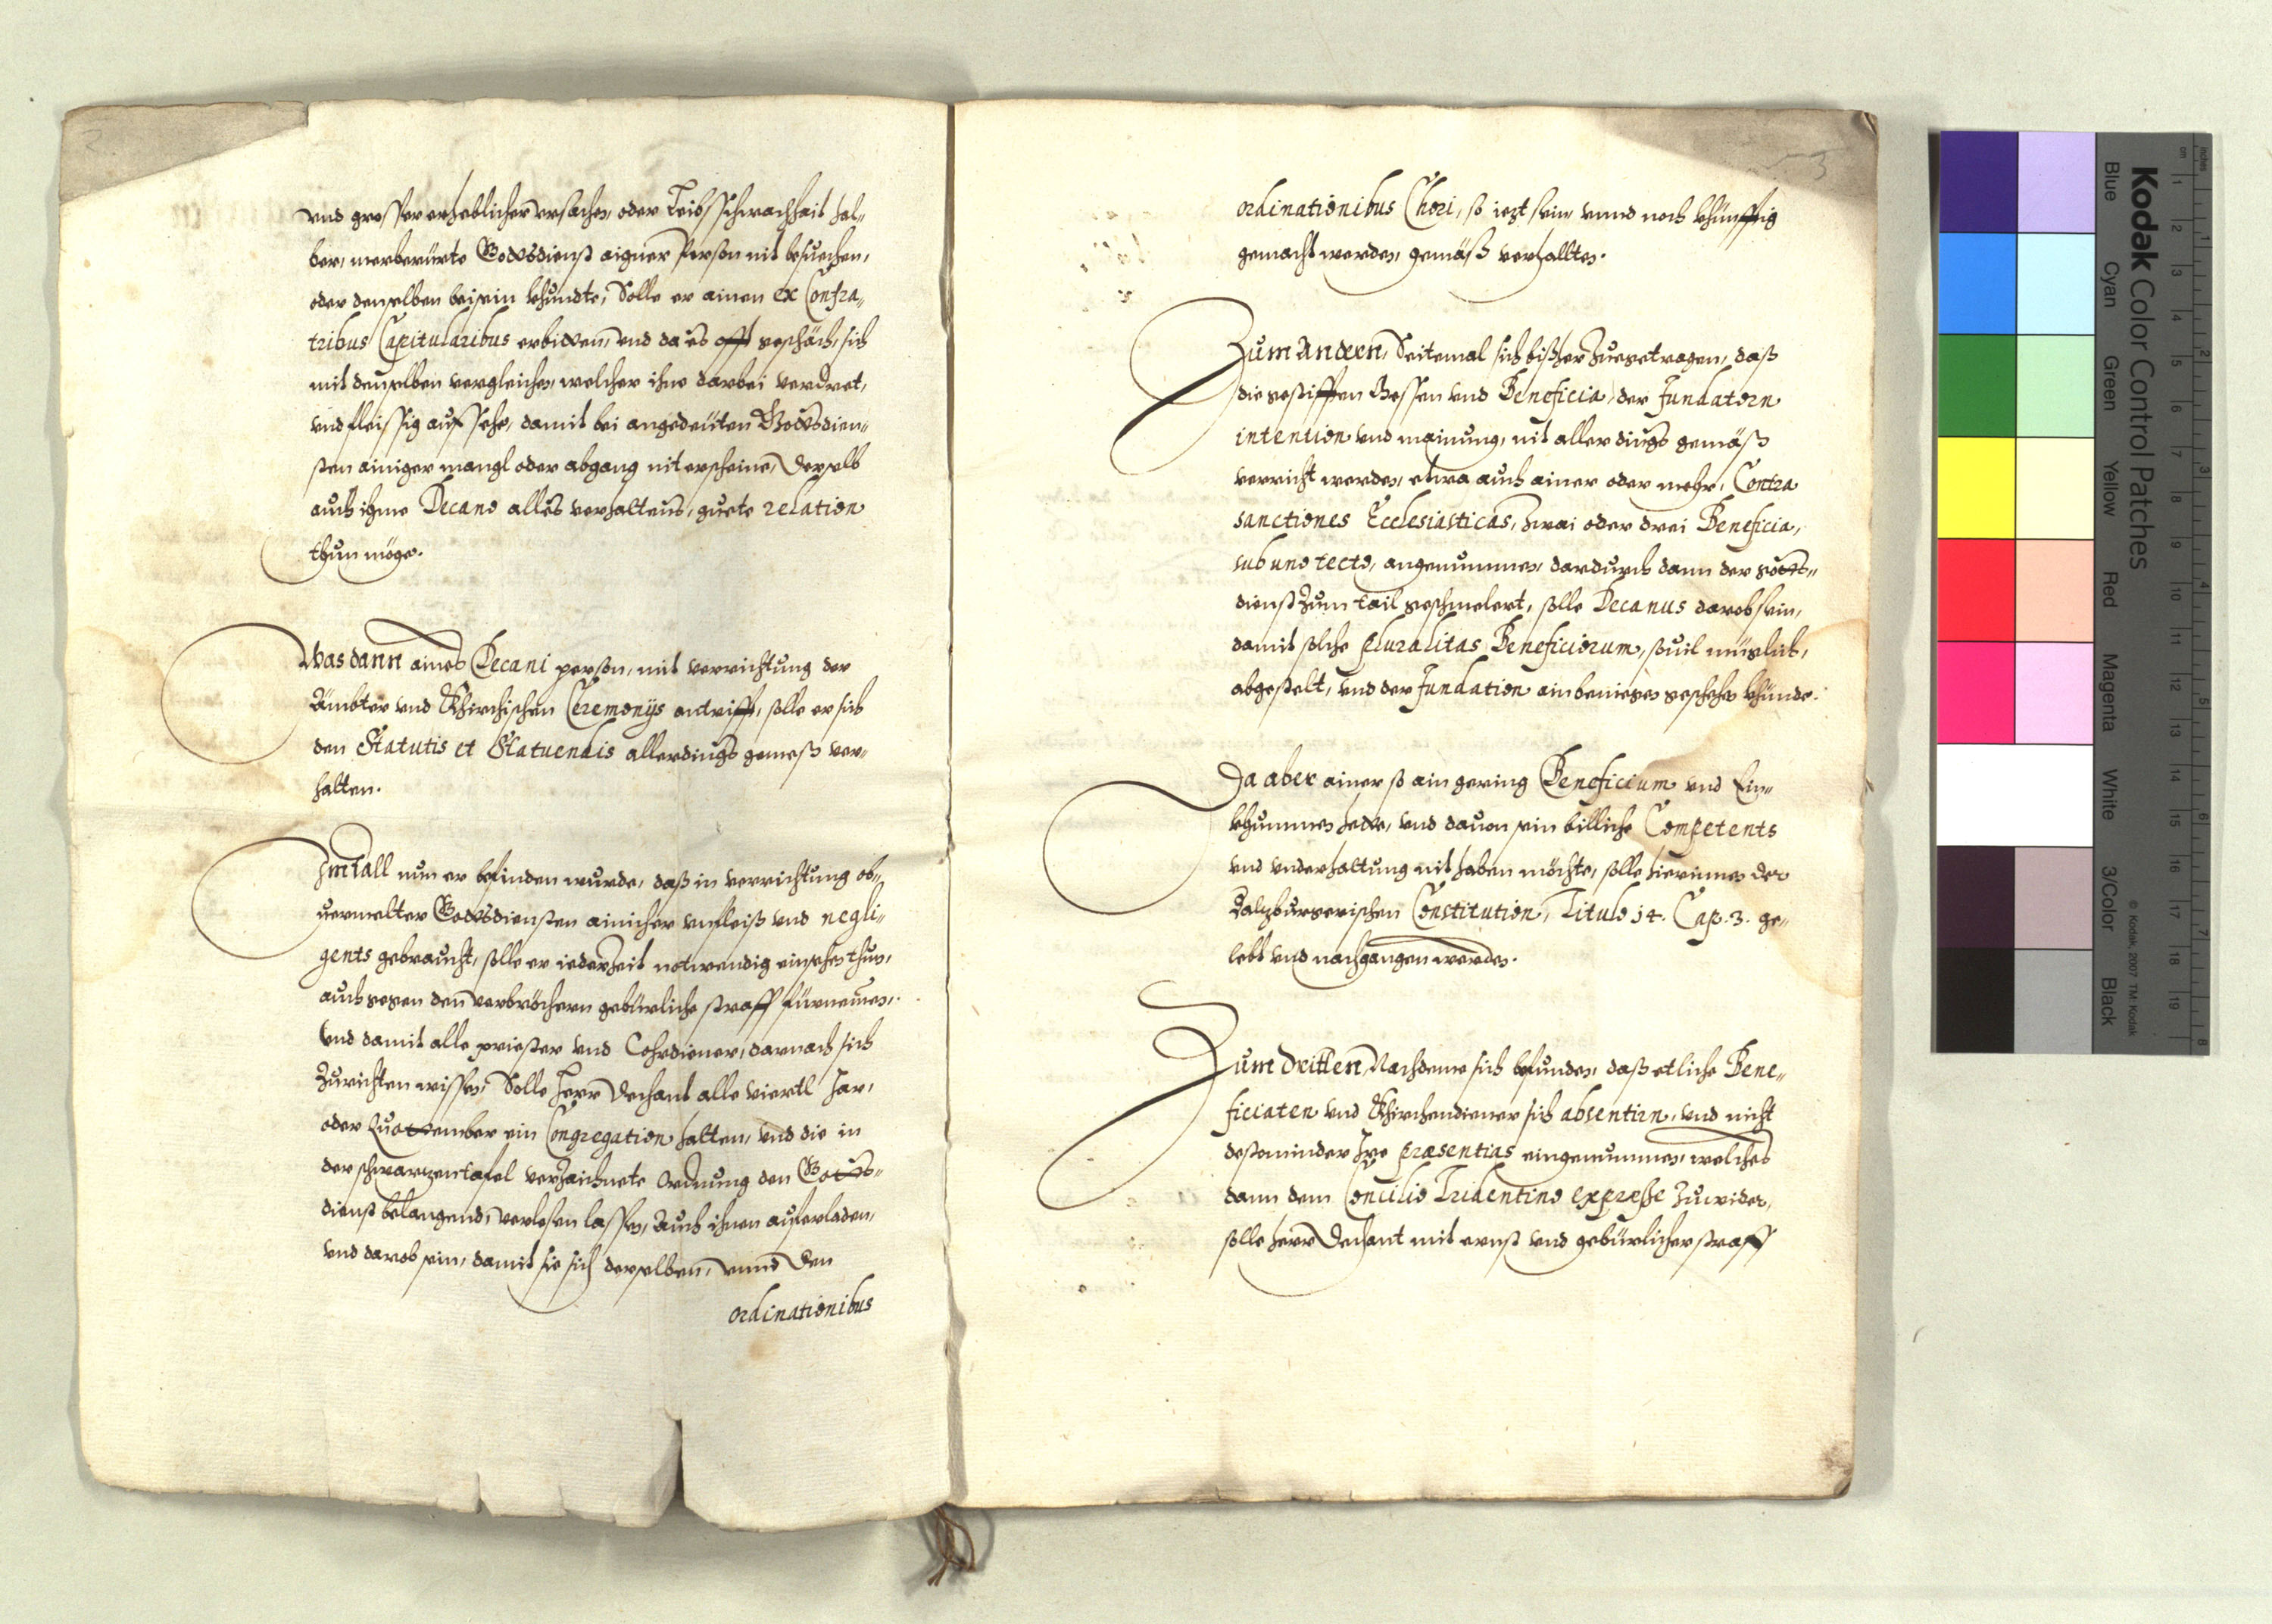 2
vnd grosser erheblicher vrsachen, oder Leibsschwachhait hal„
ber, merberürte Gottsdienst aigner Person nit besuechen,
oder denselben beisein khundte, Solle er ainen ex Confra„
tribus Capitularibus erbitten, vnd da es offt geschäch, sich
mit denselben vergleichen, welcher ihne darbei verdret,
vnd fleissig aufsehe, damit bei angedeüten Gottsdien„
sten ainiger mangl oder abgang nit erscheine, Derselb
auch ihme Decano alles verhaltens, guete relation
thun möge.
Was dann aines Decani person, mit verrichtung der
Ämbter vnd Khirchischen Ceremonijs antrifft, solle er sich
den Statutis et Statuendis allerdings gemeß ver„
halten.
Im fall nun er befinden wurde, daß in verrichtung ob„
uermelter Gottsdiensten ainicher vnfleiß vnd negli„
gents gebraucht, solle er iederzeit notwendig einsehen thun,
auch gegen den verbröchern gebürliche straff fürnemen,
Vnd damit alle priester vnd Cohrdiener, darnach sich
Zurichten wissen, Solle Herr Dechant alle viertl Jar,
oder Quottember ein Congregation halten, vnd die in
der schwarzen tafel verzaichnete Ordnung den Gotts„
dienst belangend, verlesen lassen, Auch ihnen auferladen,
vnd darob sein, damit sie sich derselben, vnnd den
ordinationibus
3
ordinationibus Chori, so iezt sein vnnd noch khünfftig
gemacht werden, gemäß verhallten.
Zum Andern, Seitemal sich bißher Zuegetragen, daß
die gestifften Messen vnd Beneficia, der Fundatorn
intention vnd mainung, nit aller dings gemäß
verricht werden, etwa auch ainer oder mehr, Contra
sanctiones Ecclesiasticas, zwai oder drei Beneficia,
sub uno tecto, angenummen, dardurch dann der gotts„
dienst Zum tail geschmelert, solle Decanus darob sein,
damit solche pluralitas Beneficiorum, souil müglich,
abgestelt, vnd der Fundation ain beniegen geschehen khünde.
Da aber ainer so ain gering Beneficium vnd Ein„
khummen hette, vnd dauon sein billiche Competents
vnd vnderhaltung nit haben möchte, solle hierinnen der
Salzburgerischen Constitution, Titulo 14. Cap. 3. ge„
lebt vnd nachgangen werden.
Zum Dritten, Nachdeme sich befunden, daß etliche Bene„
ficiaten vnd Khirchendiener sich absentirn, vnd nicht
destominder Ire præsentias eingenummen, welches
dann dem Concilio Tridentino expresse Zuwider,
solle Herr Dechant mit ernst vnd gebürlicher straff
Kodak Color Control Patches
© Kodak, 2007 TM: Kodak
Blue Cyan Green Yellow Red Magenta White 3/Color Black
inches 1 2 3 4 5 6 7 8
cm 1 2 3 4 5 6 7 8 9 10 11 12 13 14 15 16 17 18 19